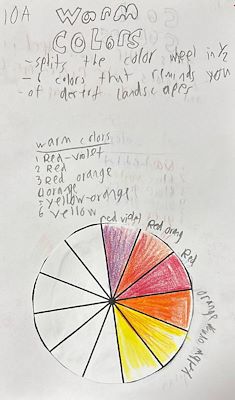 10A
Warm
COLORS
-splits the color weel in ½
-6 colors that reminds you
-of desert landscapes
warm colors
1 Red-violet
2 Red
3 Red orange
4 orange
5 yellow-orange
6 yellow
red violet
Red orang
Red
orange